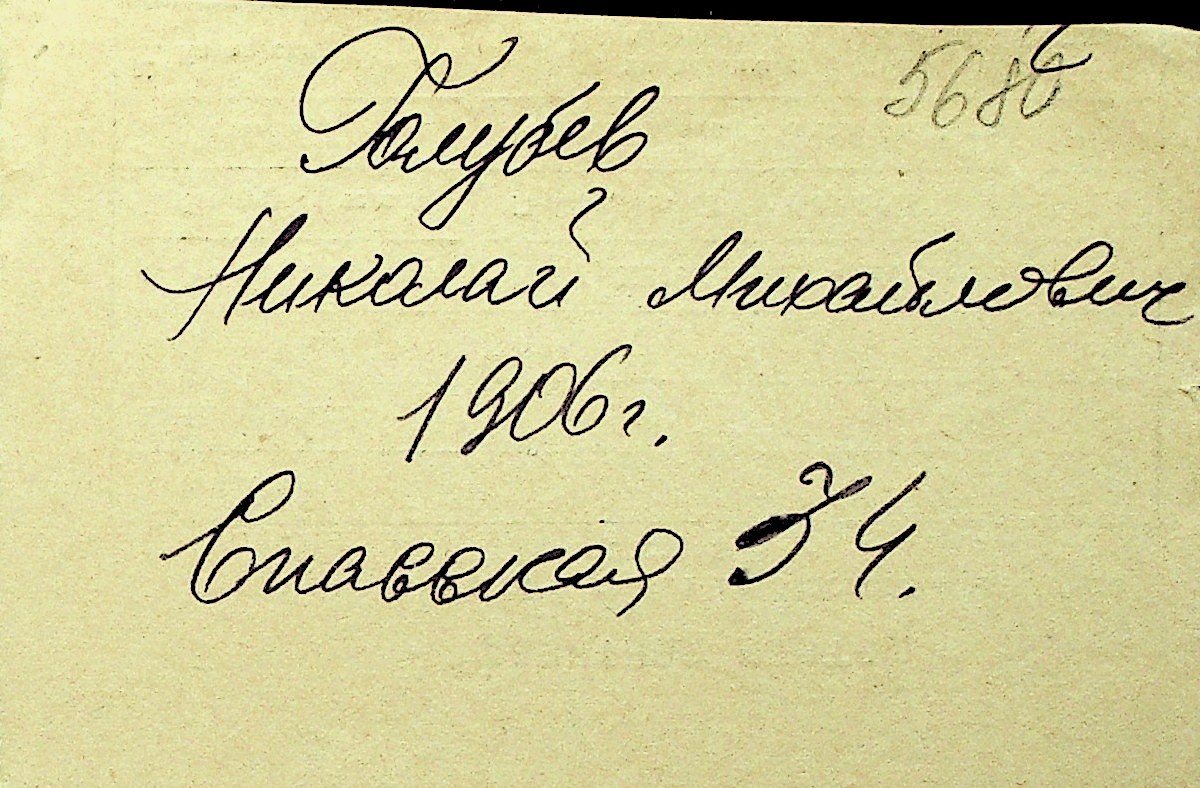 5680
Голубев
Николай Михайлович
1906г.
Спасская 34.